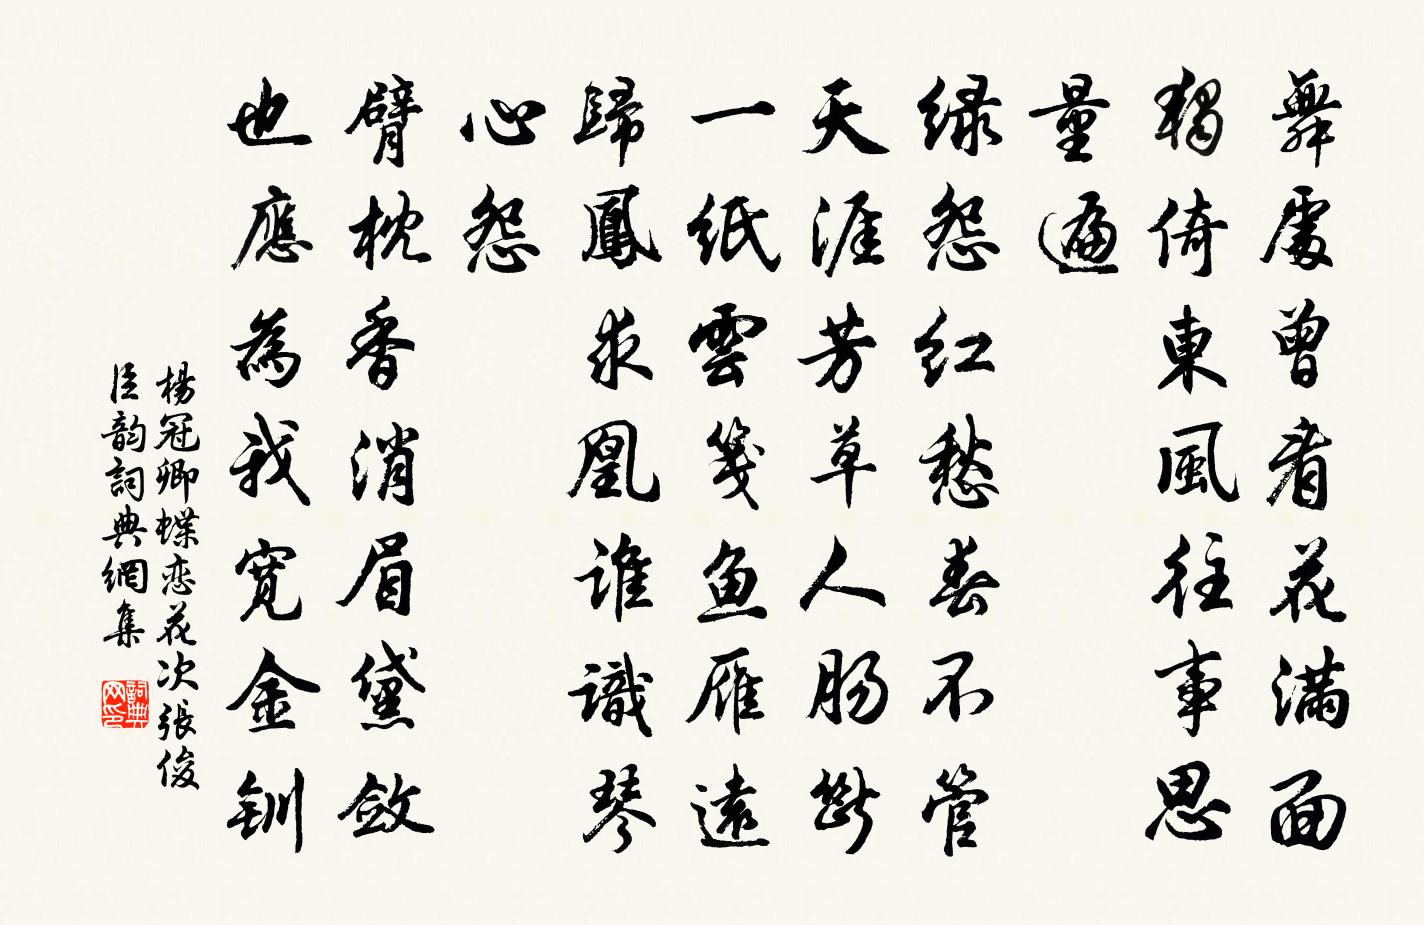 舞處曾看花滿面
獨倚東風往事思
量遍
绿怨红愁春不管
天涯芳草人肠斷
一纸雲箋鱼雁遠
歸鳳求凰谁識琴
心怨
臂枕香消眉黛斂
也應為我寬金钏
楊冠卿蝶恋花次張俊
臣韵詞典網集
詞典网印